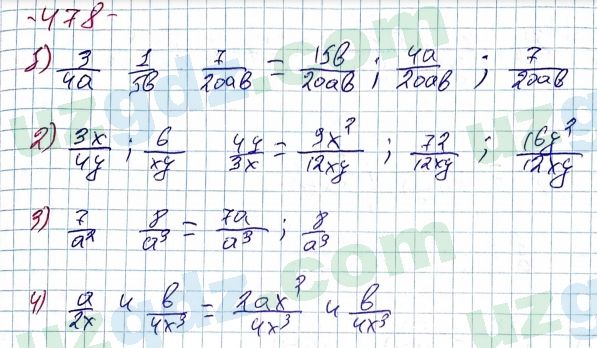 -478-
1) 3/4a 1/5b 7/20ab = 15b/20ab ; 4a/20ab ; 7/20ab
2) 3x/4y ; 6/xy 4y/3x = 9x²/12xy ; 72/12xy ; 16y²/12xy
3) 7/a² 8/a³ = 7a/a³ ; 8/a³
4) a/2x и b/4x³ = 2ax²/4x³ и b/4x³
uzgdz.com